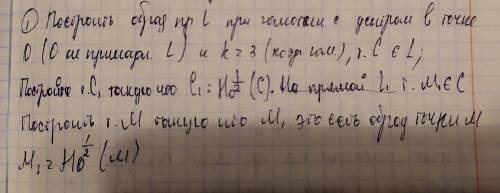 ① Построить образ пр L при гомотетии с центром в точке
O (O не принадл. L) и k = 3 (коэф гом), т. C ∈ L;
Построить т. C₁ такую что C₁ = H₀^½ (C). На прямой L т. M₁ ∈ C
Построить т. M такую что M₁ это есть образ точки M
M₁ = H₀^½ (M)